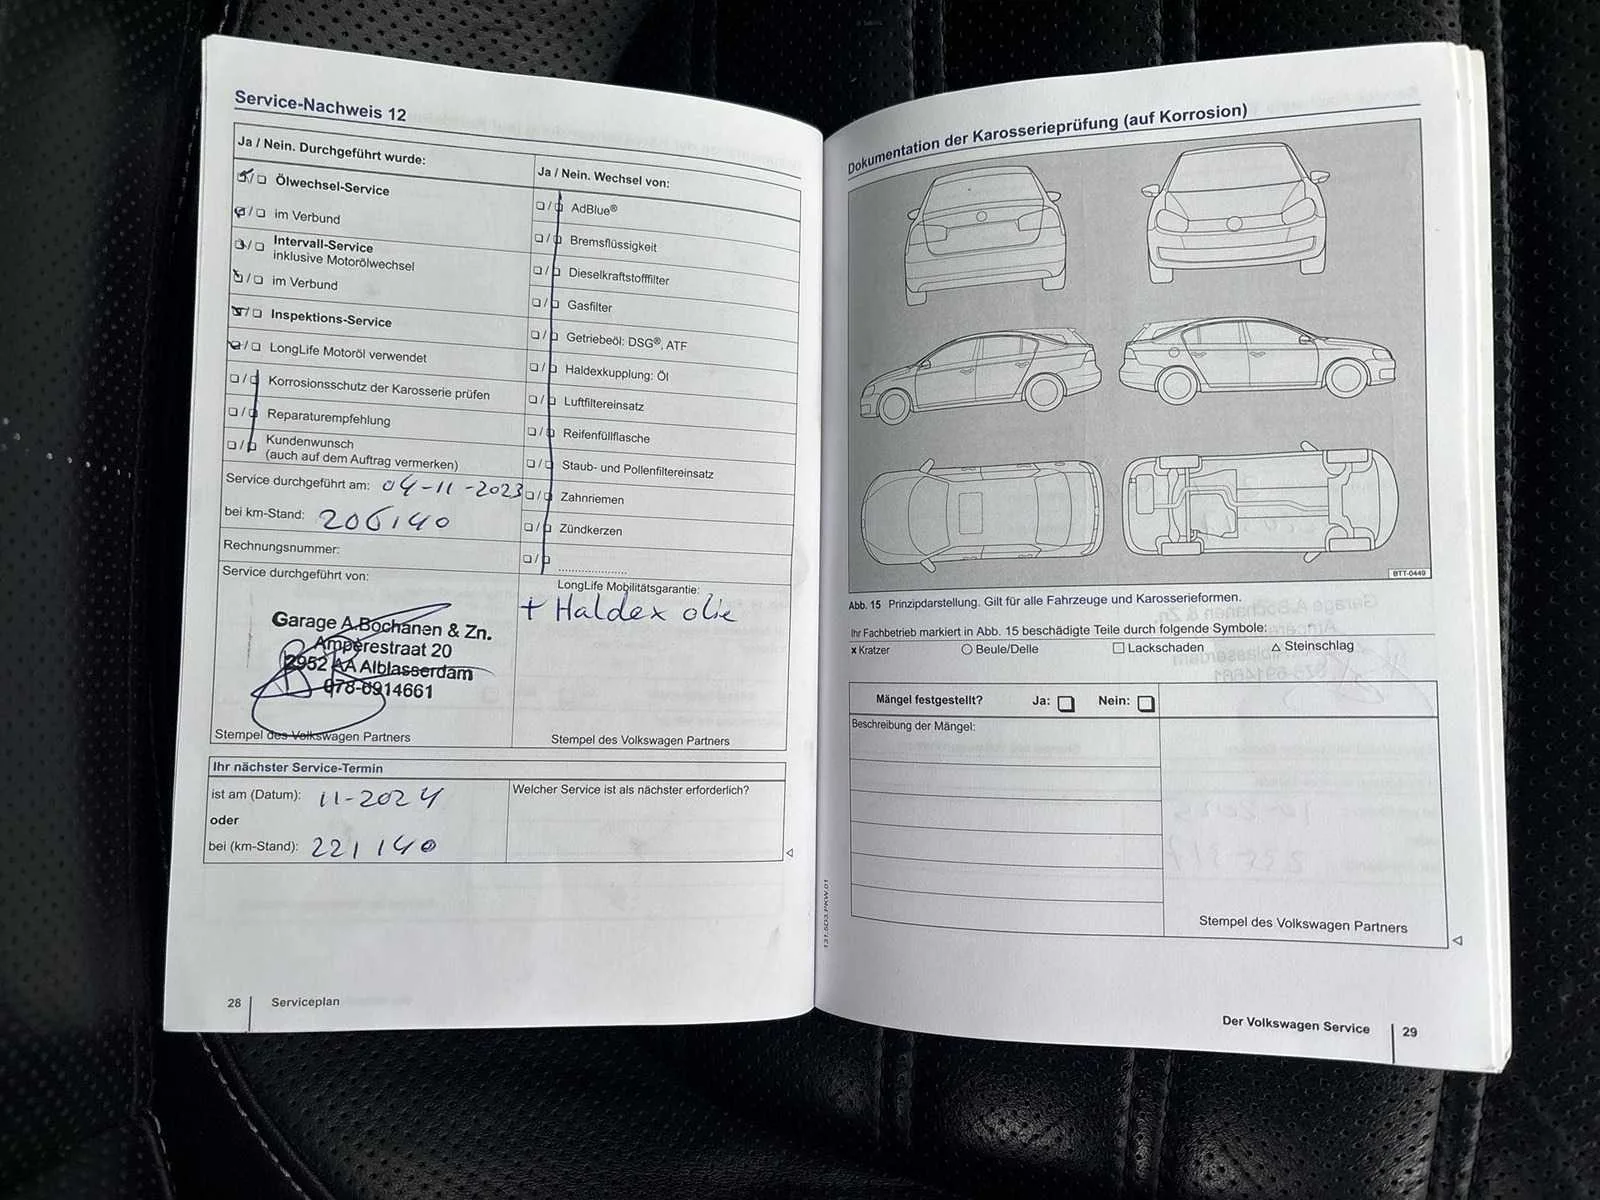 Service-Nachweis 12
Ja / Nein. Durchgeführt wurde:
Ölwechsel-Service
im Verbund
Intervall-Service
inklusive Motorölwechsel
im Verbund
Inspektions-Service
LongLife Motoröl verwendet
Korrosionsschutz der Karosserie prüfen
Reparaturempfehlung
Kundenwunsch
(auch auf dem Auftrag vermerken)
Service durchgeführt am: 04-11-2023
bei km-Stand: 206140
Rechnungsnummer:
Service durchgeführt von:
Garage A.Bochanen & Zn.
Ampèrestraat 20
2952 AA Alblasserdam
078-6914661
Stempel des Volkswagen Partners
Ja / Nein. Wechsel von:
AdBlue®
Bremsflüssigkeit
Dieselkraftstofffilter
Gasfilter
Getriebeöl: DSG®, ATF
Haldexkupplung: Öl
Luftfiltereinsatz
Reifenfüllflasche
Staub- und Pollenfiltereinsatz
Zahnriemen
Zündkerzen
LongLife Mobilitätsgarantie:
+ Haldex olie
Stempel des Volkswagen Partners
Ihr nächster Service-Termin
ist am (Datum): 11-2024
oder
bei (km-Stand): 221140
Welcher Service ist als nächster erforderlich?
28 Serviceplan
Dokumentation der Karosserieprüfung (auf Korrosion)
BTT-0449
Abb. 15 Prinzipdarstellung. Gilt für alle Fahrzeuge und Karosserieformen.
Ihr Fachbetrieb markiert in Abb. 15 beschädigte Teile durch folgende Symbole:
x Kratzer ○ Beule/Delle □ Lackschaden △ Steinschlag
Mängel festgestellt? Ja: Nein:
Beschreibung der Mängel:
Stempel des Volkswagen Partners
131.5D3.PKW.01
Der Volkswagen Service 29